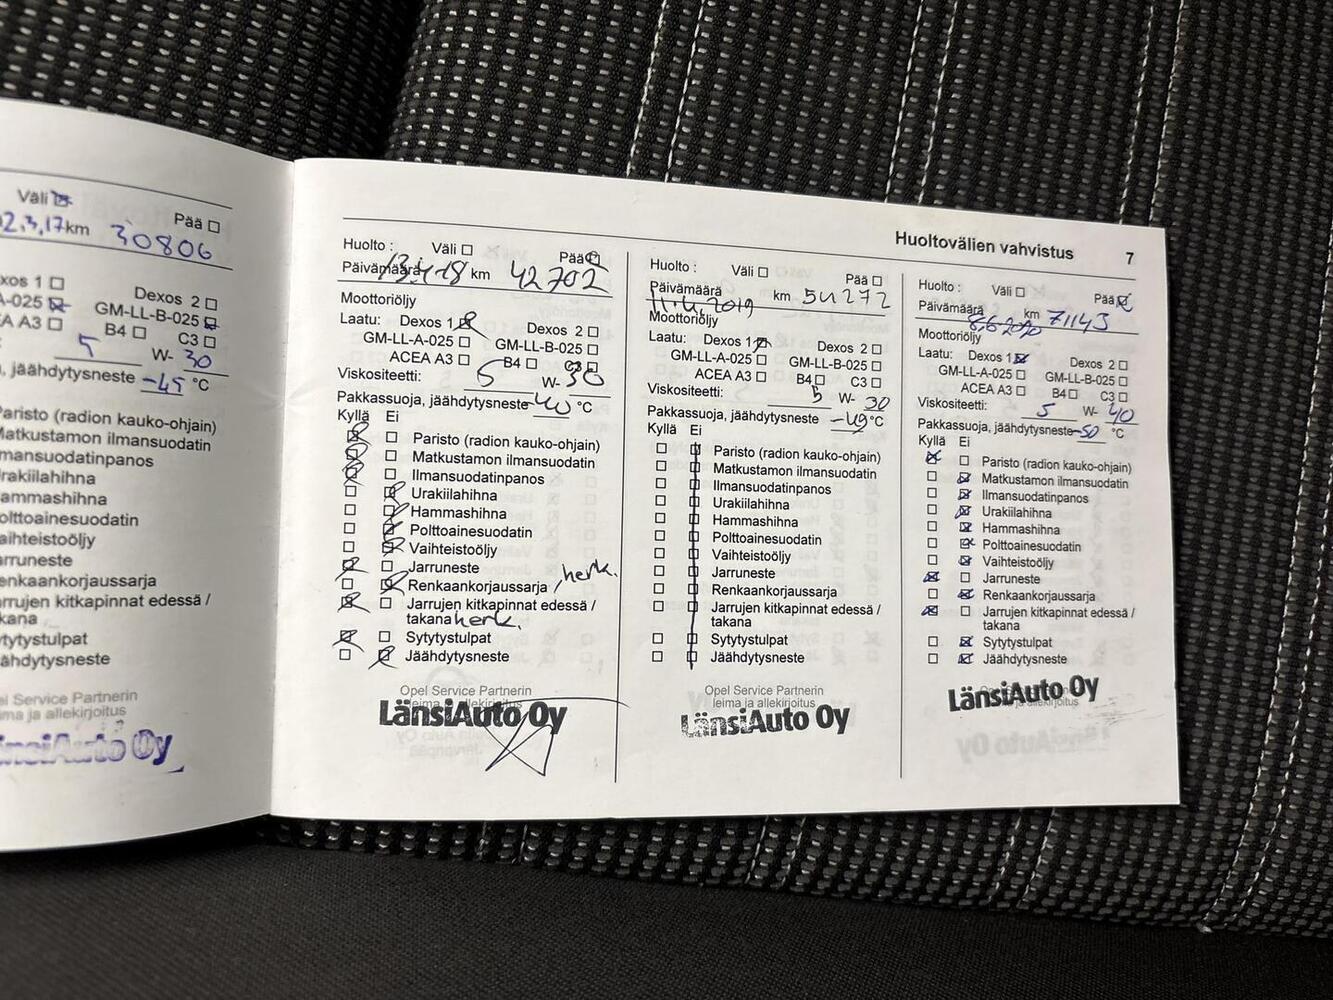 Väli ☒ Pää ☐
2.3.17 km 30806
xos 1 ☐ Dexos 2 ☐
A-025 ☒ GM-LL-B-025 ☒
EA A3 ☐ B4 ☐ C3 ☐
5 W- 30
, jäähdytysneste -45 °C
Paristo (radion kauko-ohjain)
Matkustamon ilmansuodatin
mansuodatinpanos
rakiilahihna
ammashihna
olttoainesuodatin
aihteistoöljy
arruneste
enkaankorjaussarja
arrujen kitkapinnat edessä /
kana
ytytystulpat
ähdytysneste
el Service Partnerin
ima ja allekirjoitus
insiAuto Oy
Huoltovälien vahvistus 7
Huolto : Väli ☐ Pää ☒
Päivämäärä 13.4.18 km 42702
Moottoriöljy
Laatu: Dexos 1 ☒ Dexos 2 ☐
GM-LL-A-025 ☐ GM-LL-B-025 ☐
ACEA A3 ☐ B4 ☐ C3 ☐
Viskositeetti: 5 W- 30
Pakkassuoja, jäähdytysneste -40 °C
Kyllä Ei
☒ ☐ Paristo (radion kauko-ohjain)
☒ ☐ Matkustamon ilmansuodatin
☒ ☐ Ilmansuodatinpanos
☐ ☒ Urakiilahihna
☐ ☒ Hammashihna
☐ ☒ Polttoainesuodatin
☐ ☒ Vaihteistoöljy
☒ ☐ Jarruneste
☐ ☒ Renkaankorjaussarja , herk.
☒ ☐ Jarrujen kitkapinnat edessä /
takana herk.
☒ ☐ Sytytystulpat
☐ ☒ Jäähdytysneste
Opel Service Partnerin
leima ja allekirjoitus
LänsiAuto Oy
Huolto : Väli ☐ Pää ☐
Päivämäärä 11.4.2019 km 54272
Moottoriöljy
Laatu: Dexos 1 ☒ Dexos 2 ☐
GM-LL-A-025 ☐ GM-LL-B-025 ☐
ACEA A3 ☐ B4 ☐ C3 ☐
Viskositeetti: 5 W- 30
Pakkassuoja, jäähdytysneste -49 °C
Kyllä Ei
☐ ☐ Paristo (radion kauko-ohjain)
☐ ☐ Matkustamon ilmansuodatin
☐ ☐ Ilmansuodatinpanos
☐ ☐ Urakiilahihna
☐ ☐ Hammashihna
☐ ☐ Polttoainesuodatin
☐ ☐ Vaihteistoöljy
☐ ☐ Jarruneste
☐ ☐ Renkaankorjaussarja
☐ ☐ Jarrujen kitkapinnat edessä /
takana
☐ ☐ Sytytystulpat
☐ ☐ Jäähdytysneste
Opel Service Partnerin
leima ja allekirjoitus
LänsiAuto Oy
Huolto : Väli ☐ Pää ☒
Päivämäärä 8.6.2020 km 71143
Moottoriöljy
Laatu: Dexos 1 ☒ Dexos 2 ☐
GM-LL-A-025 ☐ GM-LL-B-025 ☐
ACEA A3 ☐ B4 ☐ C3 ☐
Viskositeetti: 5 W- 40
Pakkassuoja, jäähdytysneste -50 °C
Kyllä Ei
☒ ☐ Paristo (radion kauko-ohjain)
☐ ☒ Matkustamon ilmansuodatin
☐ ☒ Ilmansuodatinpanos
☐ ☒ Urakiilahihna
☐ ☒ Hammashihna
☐ ☒ Polttoainesuodatin
☐ ☒ Vaihteistoöljy
☒ ☐ Jarruneste
☐ ☒ Renkaankorjaussarja
☒ ☐ Jarrujen kitkapinnat edessä /
takana
☐ ☒ Sytytystulpat
☐ ☒ Jäähdytysneste
LänsiAuto Oy
ja allekirjoitus